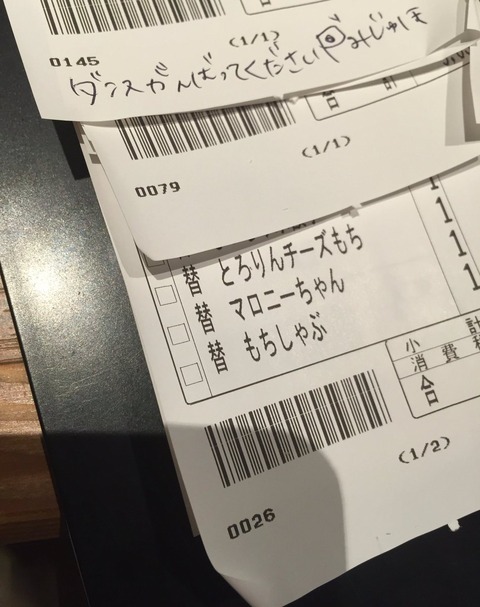 (1/1)
0145
ダンスがんばってください
みじゅほ
合計
(1/1)
0079
1
替 とろりんチーズもち 1
替 マロニーちゃん 1
替 もちしゃぶ 1
小計
消費税
合
(1/2)
0026